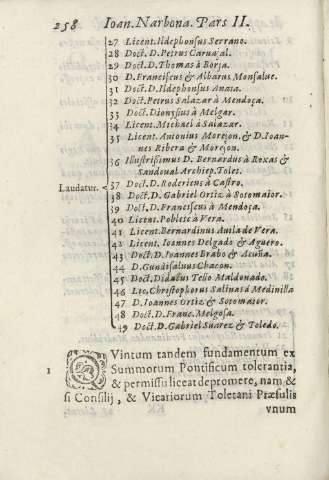 258 Ioan. Narbona. Pars II.
27 Licent. Ildephonsus Serrano.
28 Doct. D. Petrus Caruajal.
29 Doct. D. Thomas à Borja.
30 D. Franciscus & Albarus Monsalue.
31 Doct. D. Ildephonsus Anaia.
32 Doct. Petrus Salazar à Mendoça.
33 Doct. Dionysius à Melgar.
34 Licent. Michael à Salazar.
35 Licent. Antonius Morejon, & D. Ioannes Ribera & Morejon.
36 Illustrissimus D. Bernardus à Roxas & Sandoual Archiep. Tolet.
Laudatur.
37 Doct. D. Rodericus à Castro.
38 Doct. D. Gabriel Ortiz à Sotomaior.
39 Doct. D. Franciscus à Mendoça.
40 Licent. Poblete à Vera.
41 Licent. Bernardinus Auila de Vera.
42 Licent. Ioannes Delgado & Aguero.
43 Doct. D. Ioannes Brabo & Acuña.
44 D. Gundisaluus Chacon.
45 Doct. Didacus Tello Maldonado.
46 Lic. Christophorus Salinas à Medinilla
47 D. Ioannes Ortiz & Sotomaior.
48 Doct. D. Franc. Melgosa.
49 Doct. D. Gabriel Suarez & Toledo.
1 QVintum tandem fundamentum ex
Summorum Pontificum tolerantia,
& permissu liceat depromere, nam &
si Consilij, & Vicariorum Toletani Præsulis
vnum